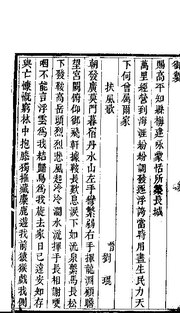 咏蒙恬所築長城
萬里經營到海涯紛紛調發逐浮誇當時用盡生民力天
下何曾屬爾家
扶風歌
晉 劉琨
朝發廣莫門暮宿丹水山左手彎繁弱右手揮龍淵顧瞻
望宮闕俯仰御飛軒據鞍長歎息淚下如流泉繫馬長松
下發鞍高岳頭烈烈悲風起泠泠澗水流揮手長相謝哽
咽不能言浮雲為我結歸鳥為我旋去家日已遠安知存
與亡慷慨窮林中抱膝獨摧藏麋鹿遊我前猿猴戲我側